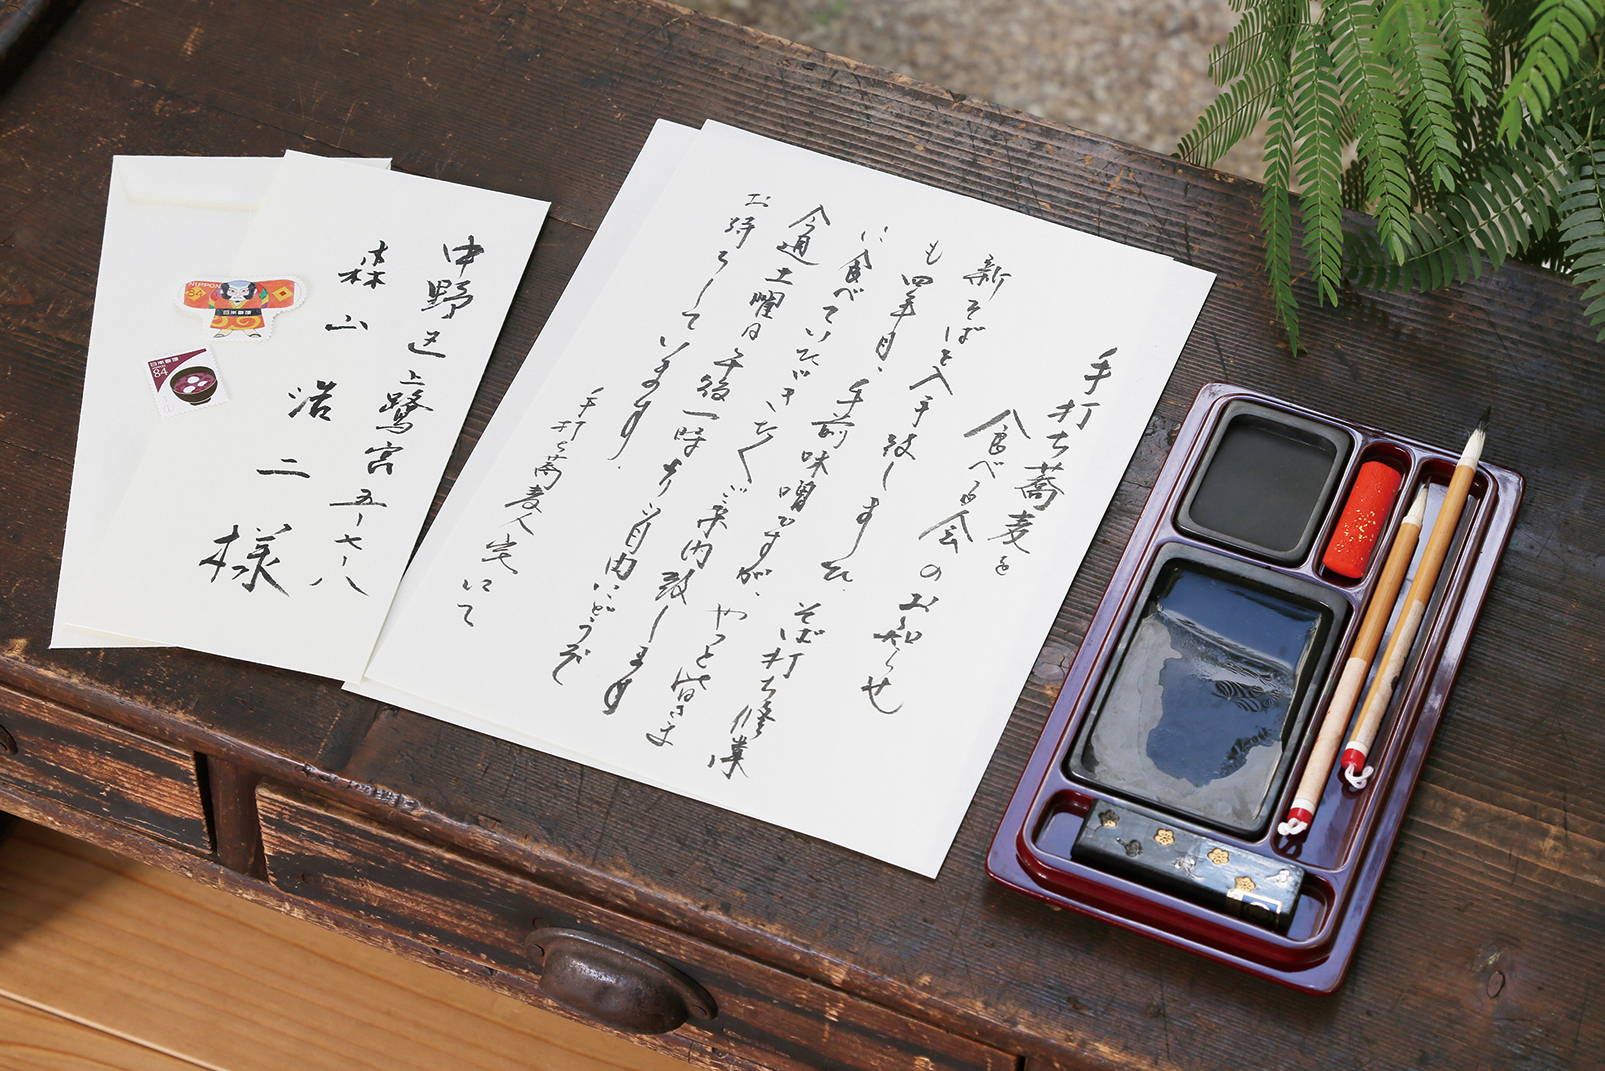 手打ち蕎麦を
食べる会のお知らせ
新そばを入手致しました、そば打ち修業
も四年目、手前味噌ですが、やっと皆さま
に食べていただきたくご案内致します
今週土曜日午後一時より 内にどうぞ
お待ちしています。
手打ち蕎麦人宅にて
中野区上鷺宮五ー七ー八
森山 浩二 様
NIPPON
84
日本郵便
日本郵便
84